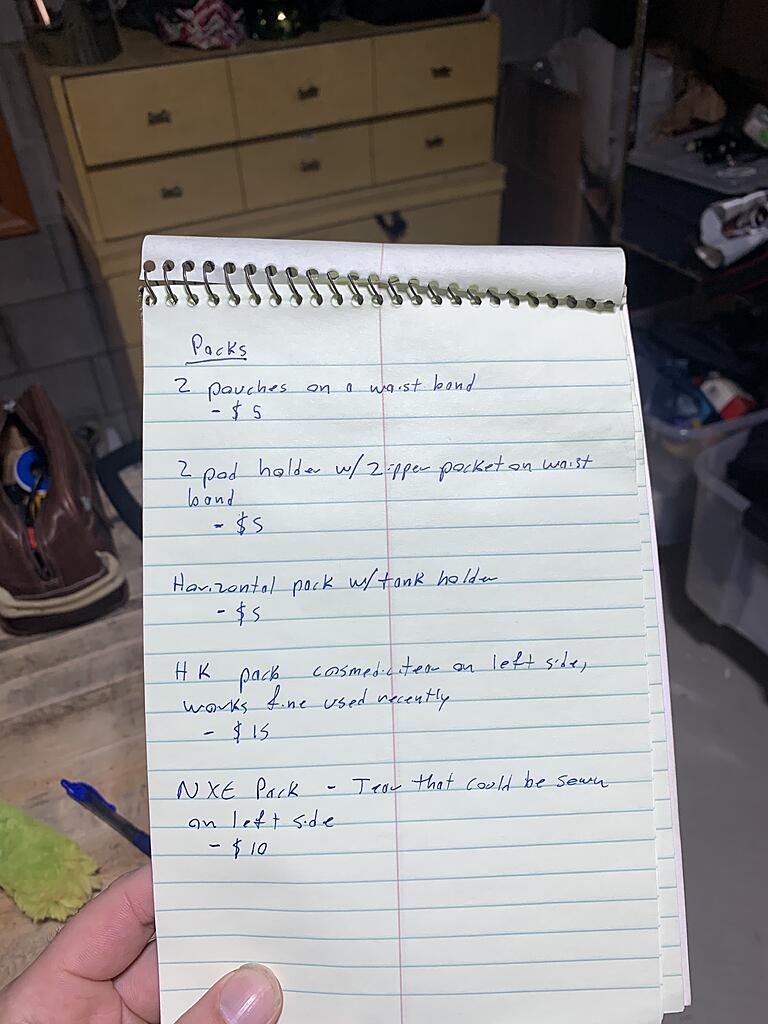 Packs
2 pouches on a waist band
- $5
2 pod holder w/ zipper pocket on waist
band
- $5
Horizontal pack w/ tank holder
- $5
HK pack cosmedic tear on left side,
works fine used recently
- $15
NXE Pack - Tear that could be sewn
on left side
- $10